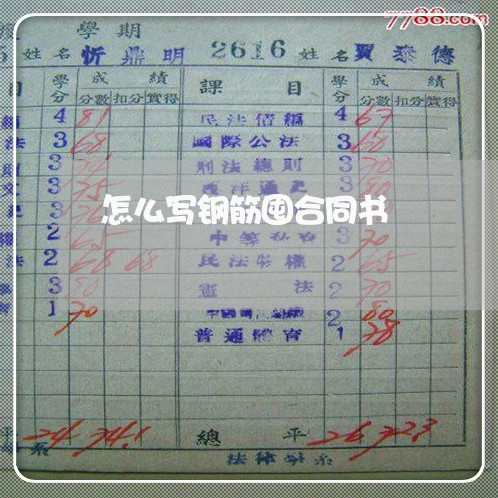 7788.com
學期
姓名 忻鼎明 2616 姓名 賈泰德
目 學分 成績 課目 學分 成績
分數 扣分 實得 分數 扣分 實得
4 81 民法債編 4 67
法 3 68 國際公法 3 60
3 刑法總則 3 70
3 75 西洋通史 3 80
怎么写钢筋国合同书
2 65 3 70
法 2 68 68 民法物權 2 65
3 80 憲法 2 70
1 70 2 80
普通體育 1 78
平 24 74.1 總平 26 72.3
系 法律學系